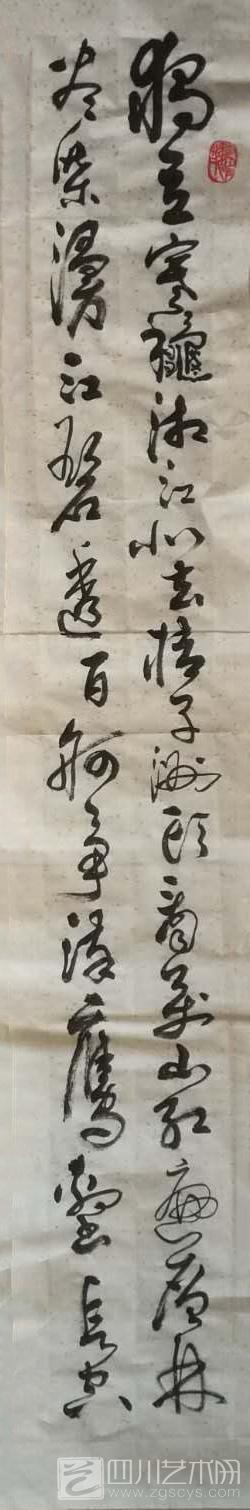 独立寒秋湘江北去橘子洲头看万山红遍层林
尽染漫江碧透百舸争流鹰击长空
四川艺术网
www.zgscys.com